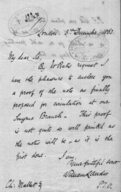 London 3rd December 1863
My dear Sir,
At Mr Bates' request I
have the pleasure to enclose you
a proof of the note as finally
proposed for circulation at our
Smyrna Branch. This proof
is not quite so well printed as
the notes will be as it is
the first done
I am
Yours faithfully